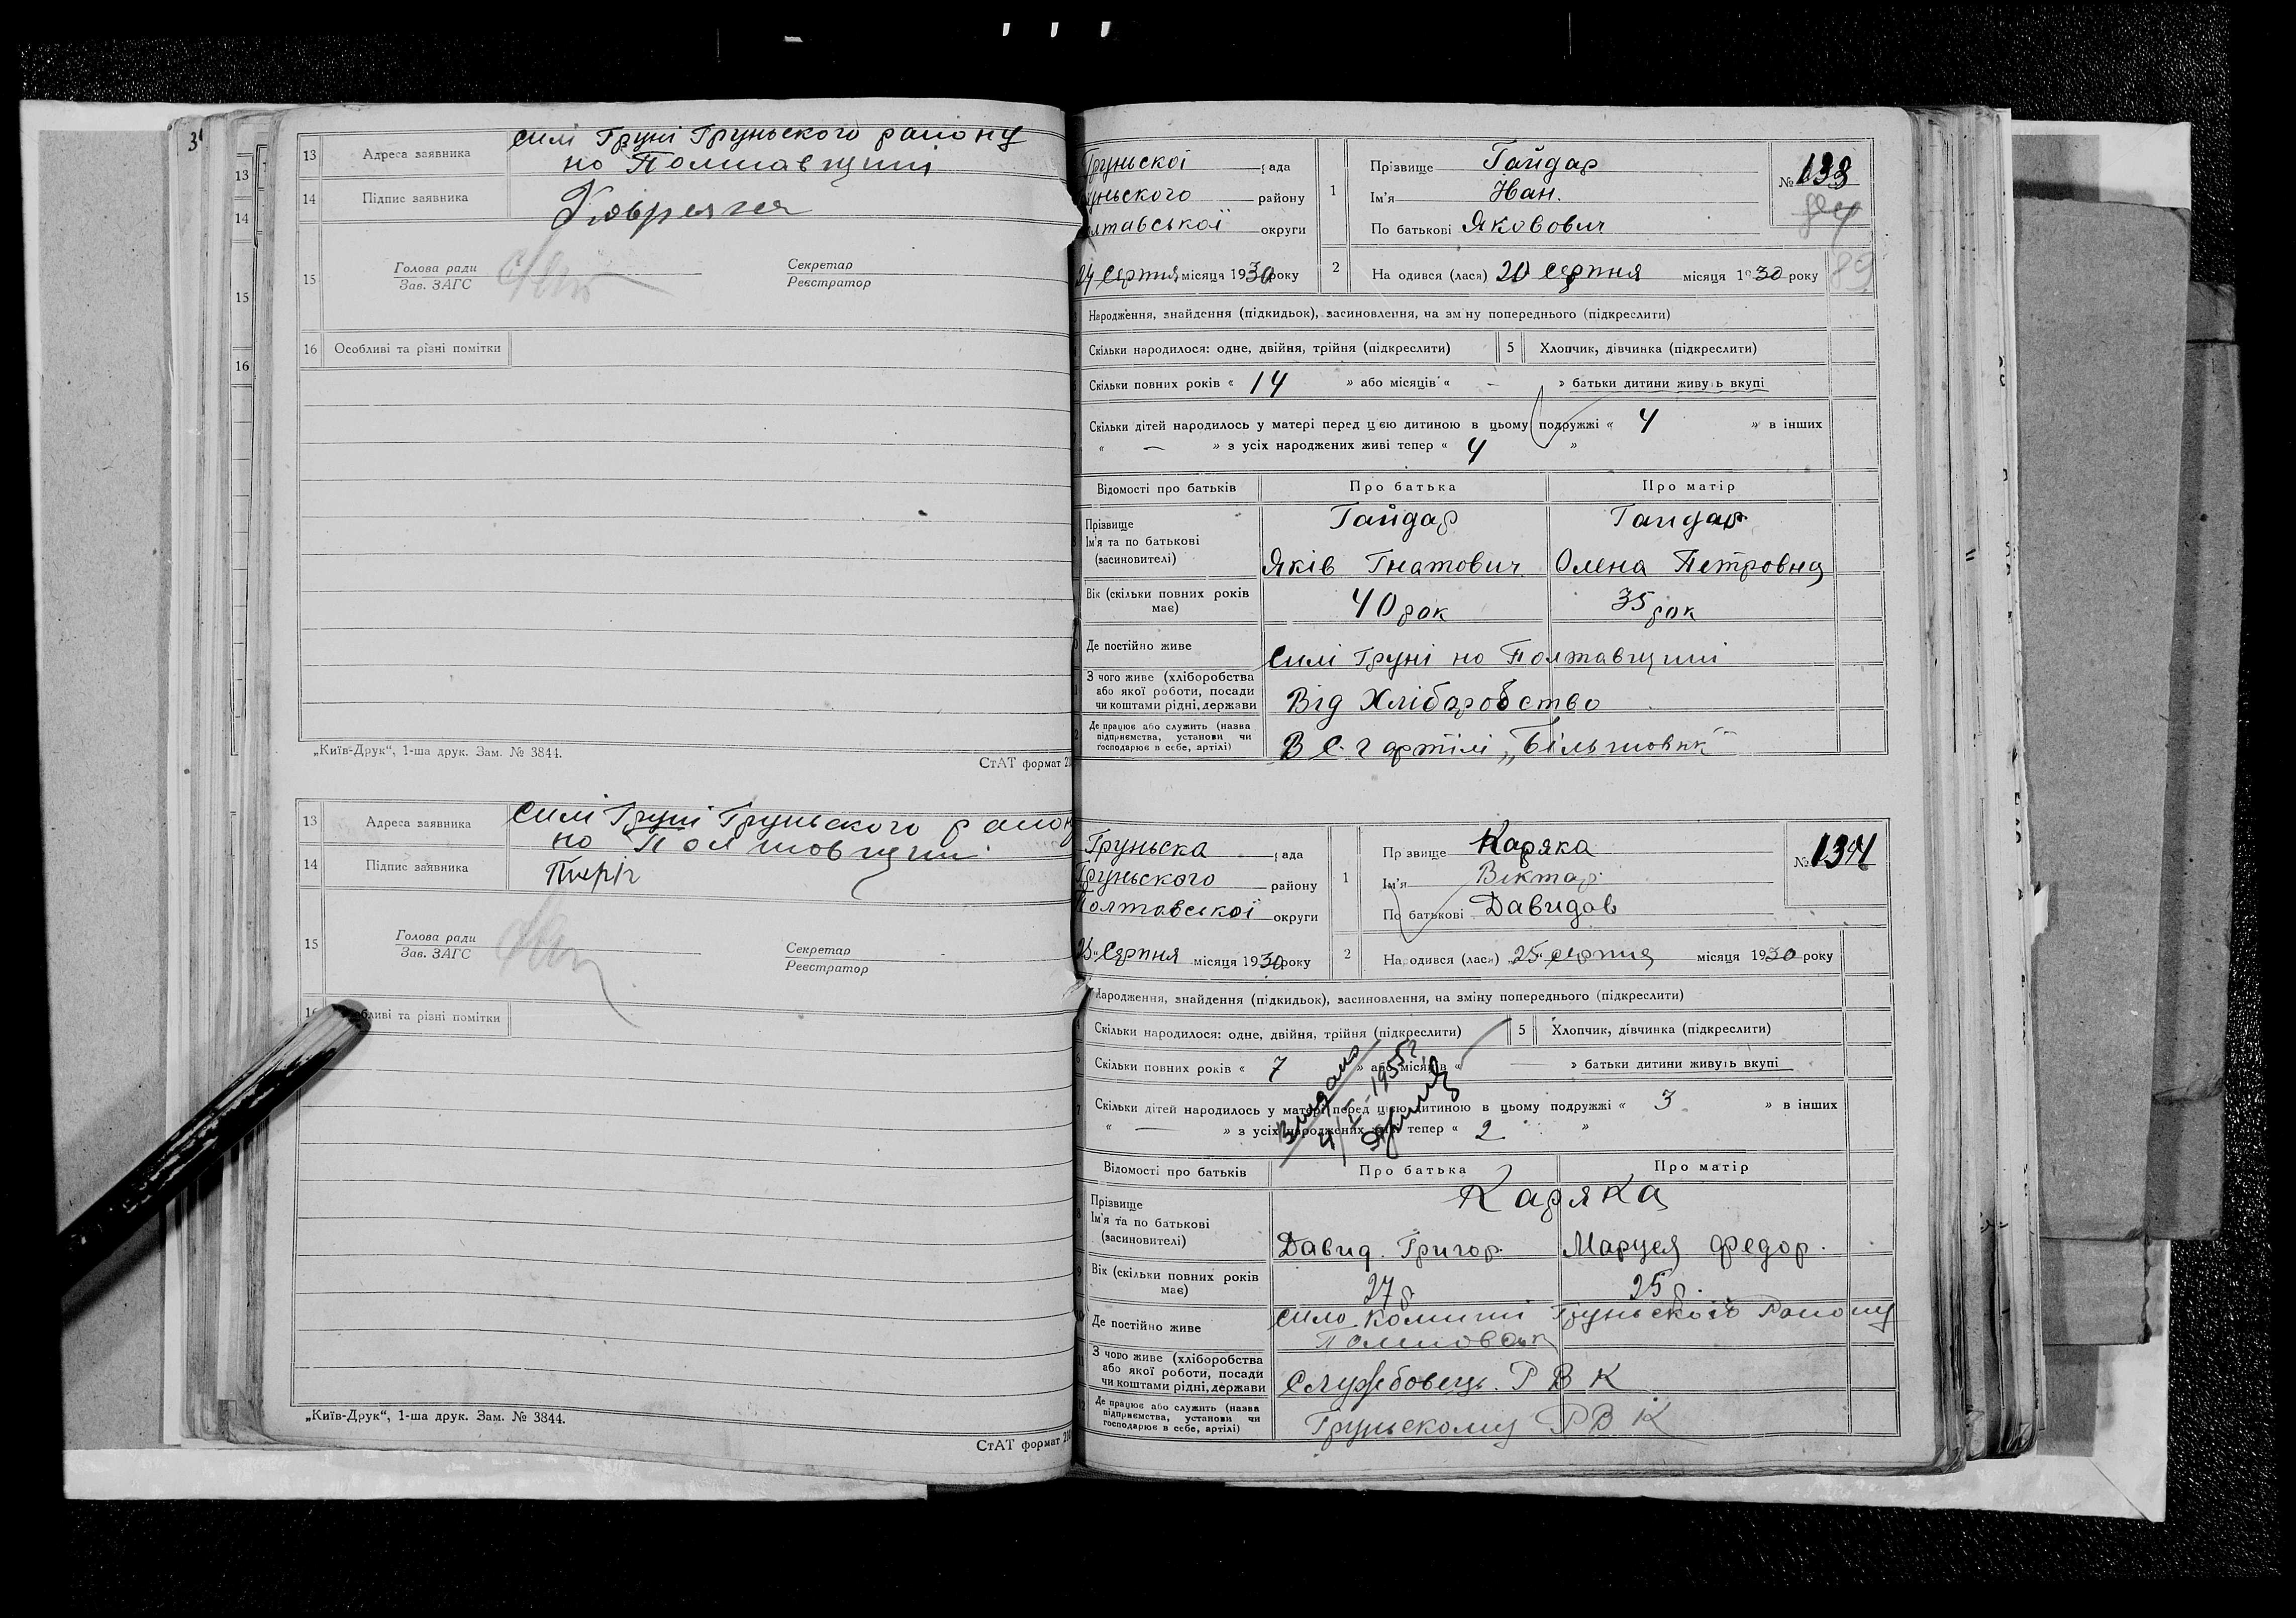 3
13 Адреса заявника силі Груні Груньского району
но Полтавщині
14 Підпис заявника
15 Голова ради
Зав. ЗАГС
Секретар
Реєстратор
16 Особливі та різні помітки
„Київ-Друк“, 1-ша друк. Зам. № 3844.
СтАТ формат
13 Адреса заявника Силі Груні Груньского район
но Полтовщині
14 Підпис заявника
15 Голова ради
Зав. ЗАГС
Секретар
Реєстратор
16 бливі та різні помітки
„Київ-Друк“, 1-ша друк. Зам. № 3844.
СтАТ формат
13
14
15
16
Груньскої рада
уньского району
олтавської округи
24 Серпня місяця 1930 року
1 Прізвище Гайдар
Ім'я Иван.
По батькові Яковович
№ 133
2 На одився (лася) 20 Серпня місяця 1930 року
89
Народження, знайдення (підкидьок), засиновлення, на зміну попереднього (підкреслити)
Скільки народилося: одне, двійня, трійня (підкреслити) 5 Хлопчик, дівчинка (підкреслити)
Скільки повних років « 14 » або місяців « – » батьки дитини живуть вкупі
Скільки дітей народилось у матері перед цією дитиною в цьому подружжі « 4 » в інших
« — » з усіх народжених живі тепер « 4 »
Відомості про батьків Про батька Про матір
Прізвище Гайдар Гайдар
Ім'я та по батькові
(засиновителі) Яків Гнатович Олена Петровна
Вік (скільки повних років
має) 40 рок 35 рок
Де постійно живе Силі Груні но Полтавщині
З чого живе (хліборобства
або якої роботи, посади
чи коштами рідні, держави Від Хліборобство
Де працює або служить (назва
підприємства, установи чи
господарює в себе, артілі) В С. г артілі „Більшовик“
Груньска рада
Груньского району
Полтовської округи
25 Серпня місяця 1930 року
1 Пр звище Каряка
Ім'я Віктар
По батькові Давидов
№ 134
2 На одився (лася) 25 серпня місяця 1930 року
Народження, знайдення (підкидьок), засиновлення, на зміну попереднього (підкреслити)
Скільки народилося: одне, двійня, трійня (підкреслити) 5 Хлопчик, дівчинка (підкреслити)
Скільки повних років « 7 » або місяців « — » батьки дитини живуть вкупі
Скільки дітей народилось у матері перед цією дитиною в цьому подружжі « 3 » в інших
« — » з усіх народжених живі тепер « 2 »
Відомості про батьків Про батька Про матір
Прізвище Каряка
Ім'я та по батькові
(засиновителі) Давид. Григор. Маруся Федор.
Вік (скільки повних років
має) 27 р 25 р.
Де постійно живе Село Комиші Груньского Району
З чого живе (хліборобства
або якої роботи, посади
чи коштами рідні, держави Службовець. Р В К
Де працює або служить (назва
підприємства, установи чи
господарює в себе, артілі) Груньскому Р В К